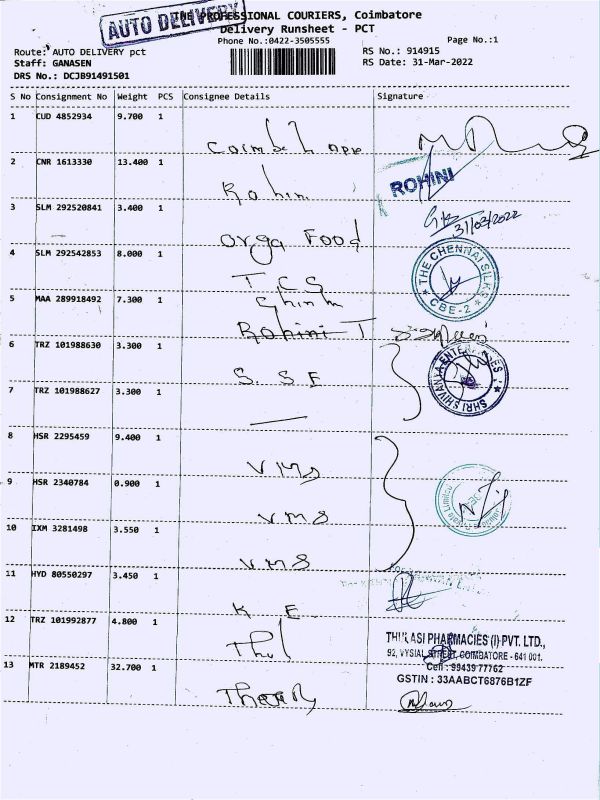 AUTO DELIVERY
THE PROFESSIONAL COURIERS, Coimbatore
Delivery Runsheet - PCT
Phone No.:0422-3505555
Page No.:1
Route: AUTO DELIVERY pct
RS No.: 914915
Staff: GANASEN
RS Date: 31-Mar-2022
DRS No.: DCJB91491501
S No Consignment No Weight PCS Consignee Details Signature
1 CUD 4852934 9.700 1
2 CNR 1613330 13.400 1 Rohini ROHINI
3 SLM 292520841 3.400 1 Orga Food 31/03/2022
4 SLM 292542853 8.000 1 TCS THE CHENNAI SILKS CBE-2
5 MAA 289918492 7.300 1 Rohini T
6 TRZ 101988630 3.300 1 S.SE SHRI SHIVANYA ENTERPRISES
7 TRZ 101988627 3.300 1
8 HSR 2295459 9.400 1 VMS
9 HSR 2340784 0.900 1 VMS
10 IXM 3281498 3.550 1 VMS
11 HYD 80550297 3.450 1 K E
12 TRZ 101992877 4.800 1
THULASI PHARMACIES (I) PVT. LTD.,
92, VYSIAL STREET, COIMBATORE - 641 001.
Cell : 99439 77762
GSTIN : 33AABCT6876B1ZF
13 MTR 2189452 32.700 1